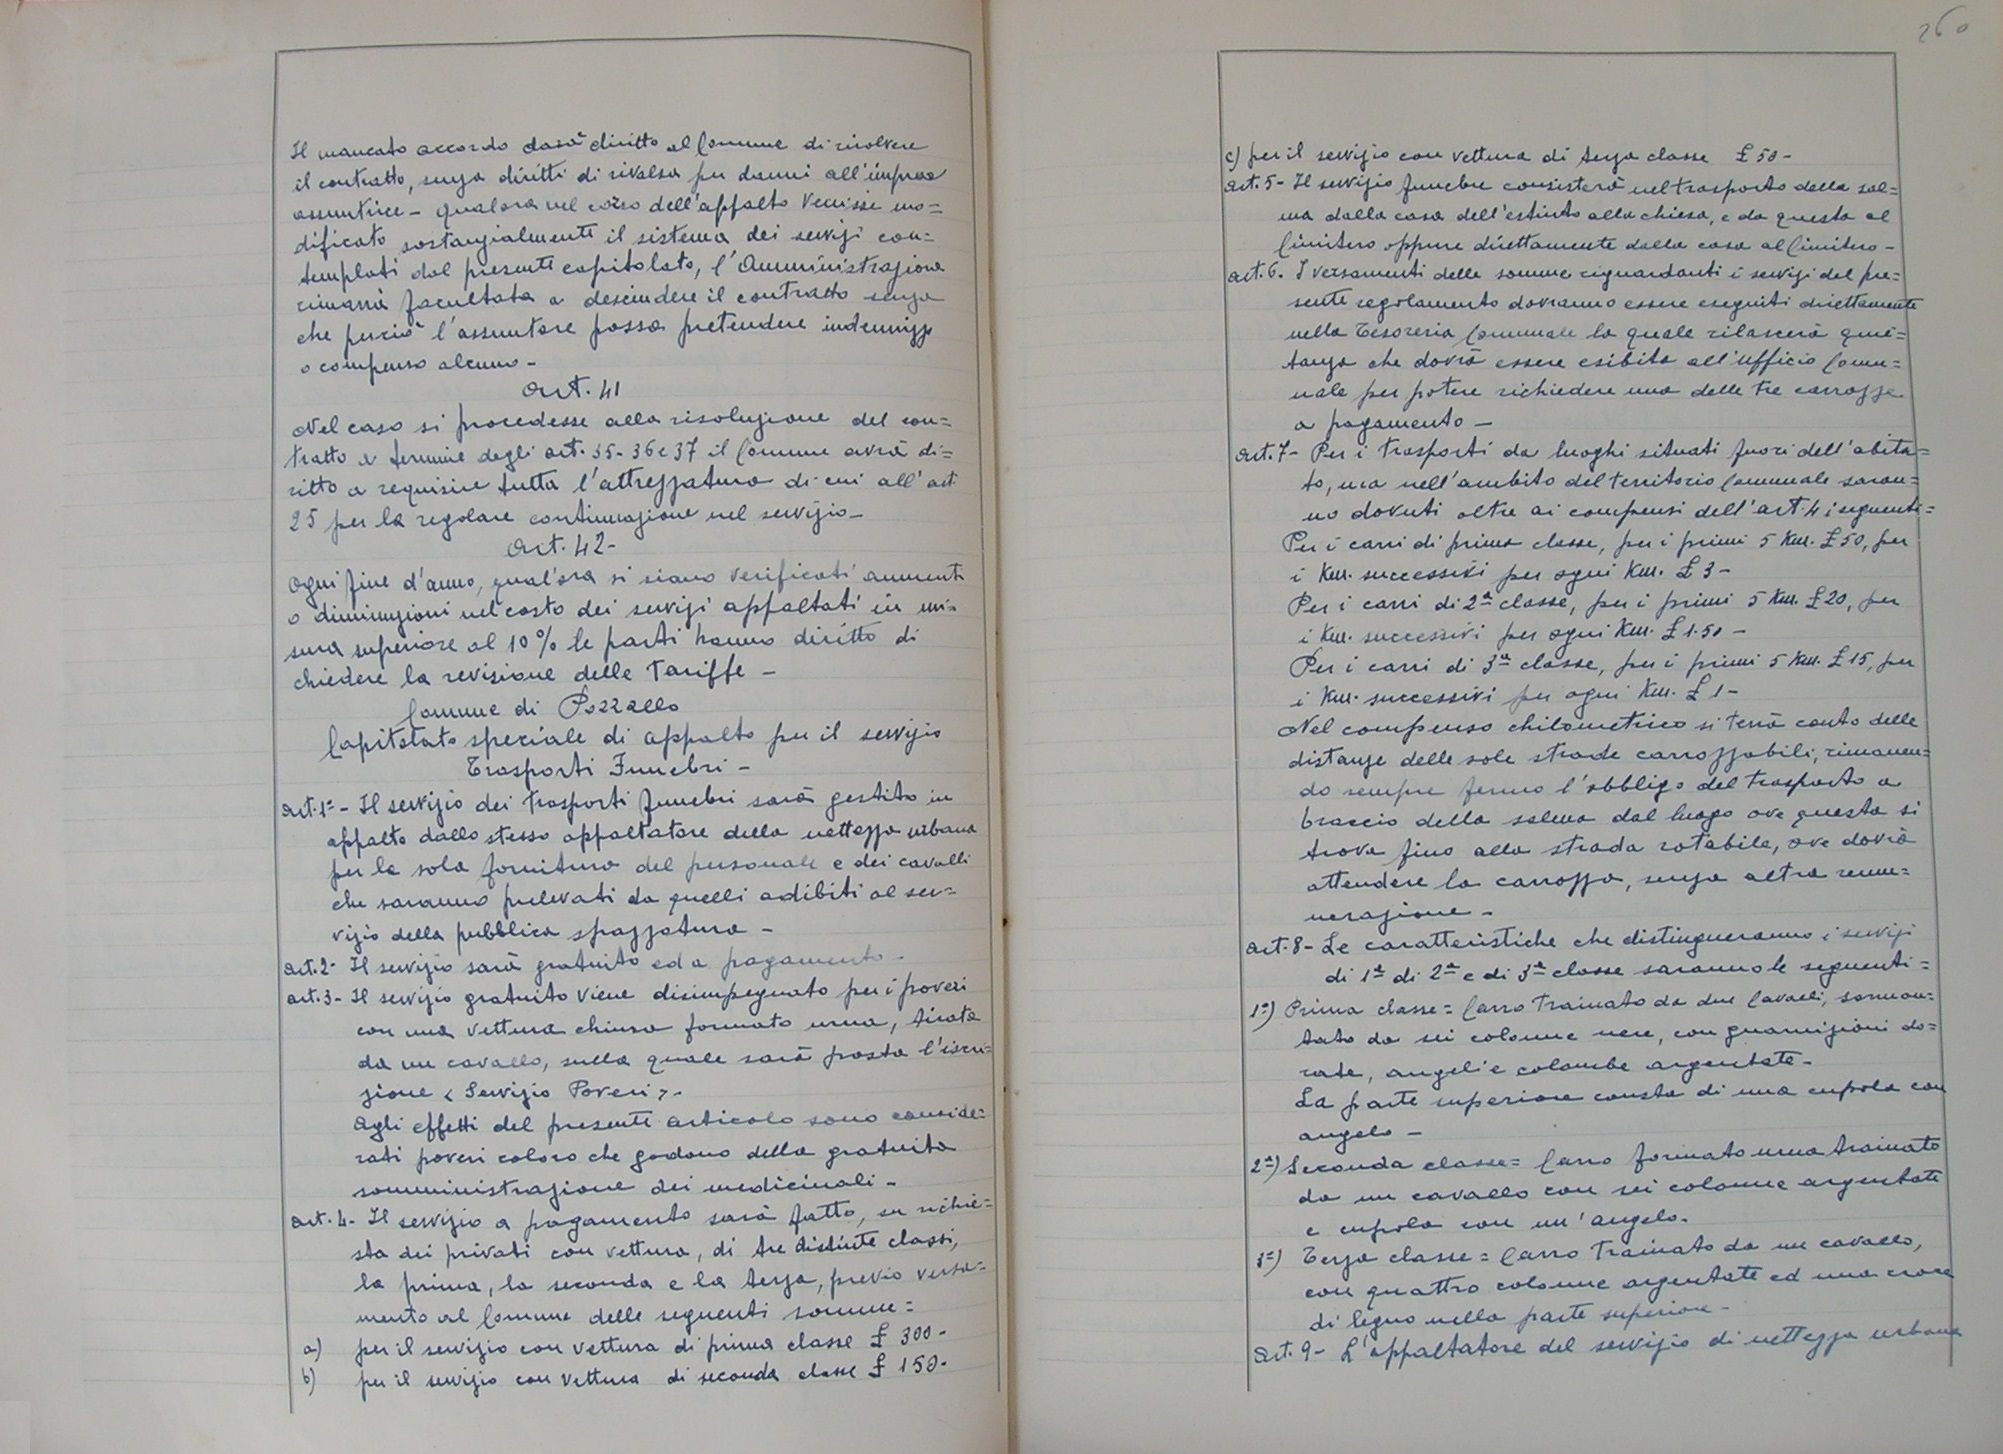 Il mancato accordo darà diritto al Comune di risolvere
il contratto, senza diritti di rivalsa per danni all'impresa
assuntrice - qualora nel corso dell'appalto venisse mo=
dificato sostanzialmente il sistema dei servizi con=
templati dal presente capitolato, l'Amministrazione
rimarrà facultata a descindere il contratto senza
che perciò l'assuntore possa pretendere indennizzo
o compenso alcuno -
Art. 41
Nel caso si procedesse alla risoluzione del con=
tratto a termine degli art. 35-36 e 37 il Comune avrà di=
ritto a requisire tutta l'attrezzatura di cui all'art.
25 per la regolare continuazione nel servizio -
Art. 42-
Ogni fine d'anno, qual'ora si siano verificati aumenti
o diminuzioni nel costo dei servizi appaltati in mi=
sura superiore al 10% le parti hanno diritto di
chiedere la revisione delle Tariffe -
Comune di Pozzallo
Capitolato speciale di appalto per il servizio
Trasporti Funebri -
Art. 1º - Il servizio dei trasporti funebri sarà gestito in
appalto dallo stesso appaltatore della nettezza urbana
per la sola fornitura del personale e dei cavalli
che saranno prelevati da quelli adibiti al ser=
vizio della pubblica spazzatura -
Art. 2- Il servizio sarà gratuito ed a pagamento -
Art. 3- Il servizio gratuito viene disimpegnato per i poveri
con una vettura chiusa formato urna, tirata
da un cavallo, sulla quale sarà posta l'iscri=
zione < Servizio Poveri >-
Agli effetti del presente articolo sono conside=
rati poveri coloro che godono della gratuita
somministrazione dei medicinali -
Art. 4- Il servizio a pagamento sarà fatto, su richie=
sta dei privati con vettura, di tre distinte classi,
la prima, la seconda e la terza, previo versa=
mento al Comune delle seguenti somme=
a) per il servizio con vettura di prima classe £ 300-
b) per il servizio con vettura di seconda classe £ 150-
260
c) per il servizio con vettura di terza classe £ 50-
Art. 5- Il servizio funebre consisterà nel trasporto della sal=
ma dalla casa dell'estinto alla chiesa, e da questa al
Cimitero oppure direttamente dalla casa al Cimitero -
Art. 6. I versamenti delle somme riguardanti i servizi del pre=
sente regolamento dovranno essere eseguiti direttamente
nella Tesoreria Comunale la quale rilascerà quie=
tanza che dovrà essere esibita all'ufficio Comu=
nale per potere richiedere una delle tre carrozze
a pagamento -
Art. 7- Per i trasporti da luoghi situati fuori dell'abita=
to, ma nell'ambito del territorio Comunale saran=
no dovuti oltre ai compensi dell'art. 4 i seguenti=
Per i carri di prima classe, per i primi 5 Km. £ 50, per
i Km. successivi per ogni Km. £ 3-
Per i carri di 2ª classe, per i primi 5 Km. £ 20, per
i Km. successivi per ogni Km. £ 1.50-
Per i carri di 3ª classe, per i primi 5 Km. £ 15, per
i Km. successivi per ogni Km. £ 1-
Nel compenso chilometrico si terrà conto delle
distanze delle sole strade carrozzabili, rimanen=
do sempre fermo l'obbligo del trasporto a
braccio della salma dal luogo ove questa si
trova fino alla strada rotabile, ove dovrà
attendere la carrozza, senza altra remu=
nerazione -
Art. 8- Le caratteristiche che distingueranno i servizi
di 1ª di 2ª e di 3ª classe saranno le seguenti=
1ª) Prima classe= Carro trainato da due Cavalli, sormon=
tato da sei colonne nere, con guarnizioni do=
rate, angeli e colombe argentate-
La parte superiore consta di una cupola con
angelo -
2ª) Seconda classe= Carro formato urna trainato
da un cavallo con sei colonne argentate
e cupola con un'angelo.
3ª) Terza classe= Carro trainato da un cavallo,
con quattro colonne argentate ed una croce
di legno nella parte superiore-
Art. 9- L'appaltatore del servizio di nettezza urbana